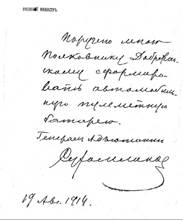 ВОЕННЫЙ МИНИСТР
Поручено мною
Полковнику Добржан-
скому сформиро-
вать автомобиль-
ную пулеметную
батарею.
Генерал Адъютант
Сухомлинов
19 Авг. 1914.